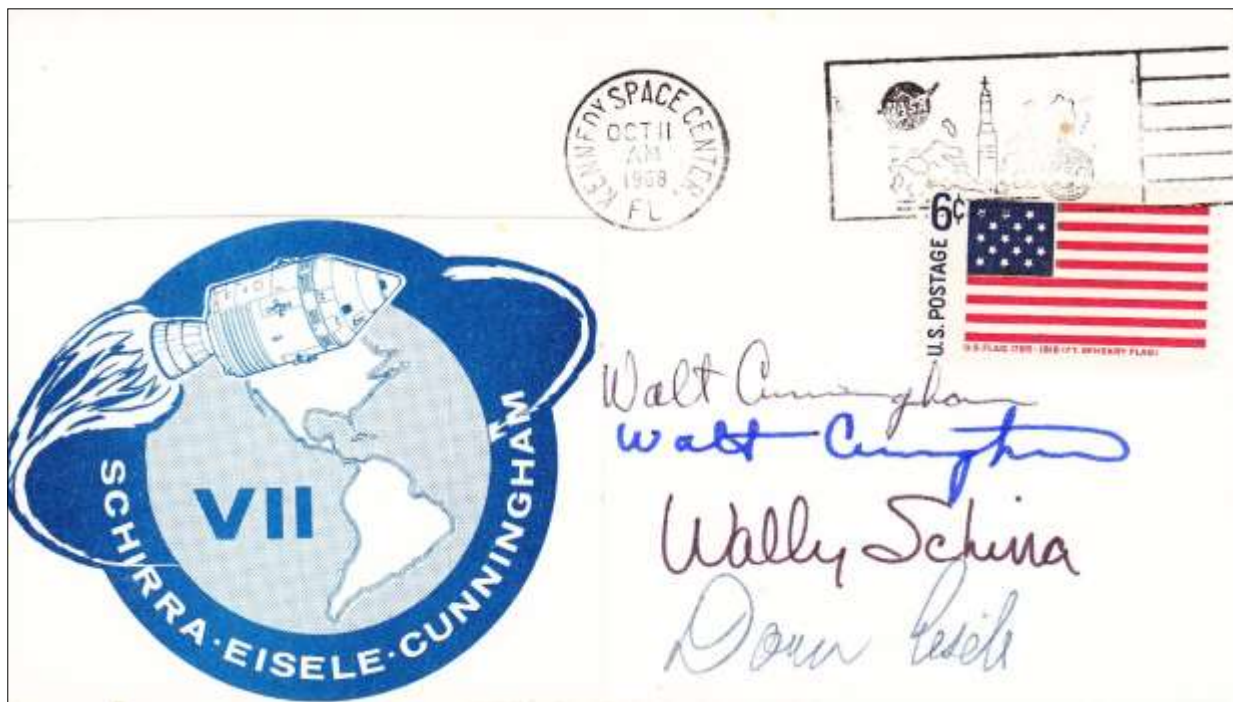 KENNEDY SPACE CENTER,
OCT 11
AM
1968
FL
NASA
6¢
U.S. POSTAGE
U.S. FLAG 1795-1818 (FT. McHENRY FLAG)
VII
SCHIRRA·EISELE·CUNNINGHAM
Walt Cunningham
Walt Cunningham
Wally Schirra
Donn Eisele